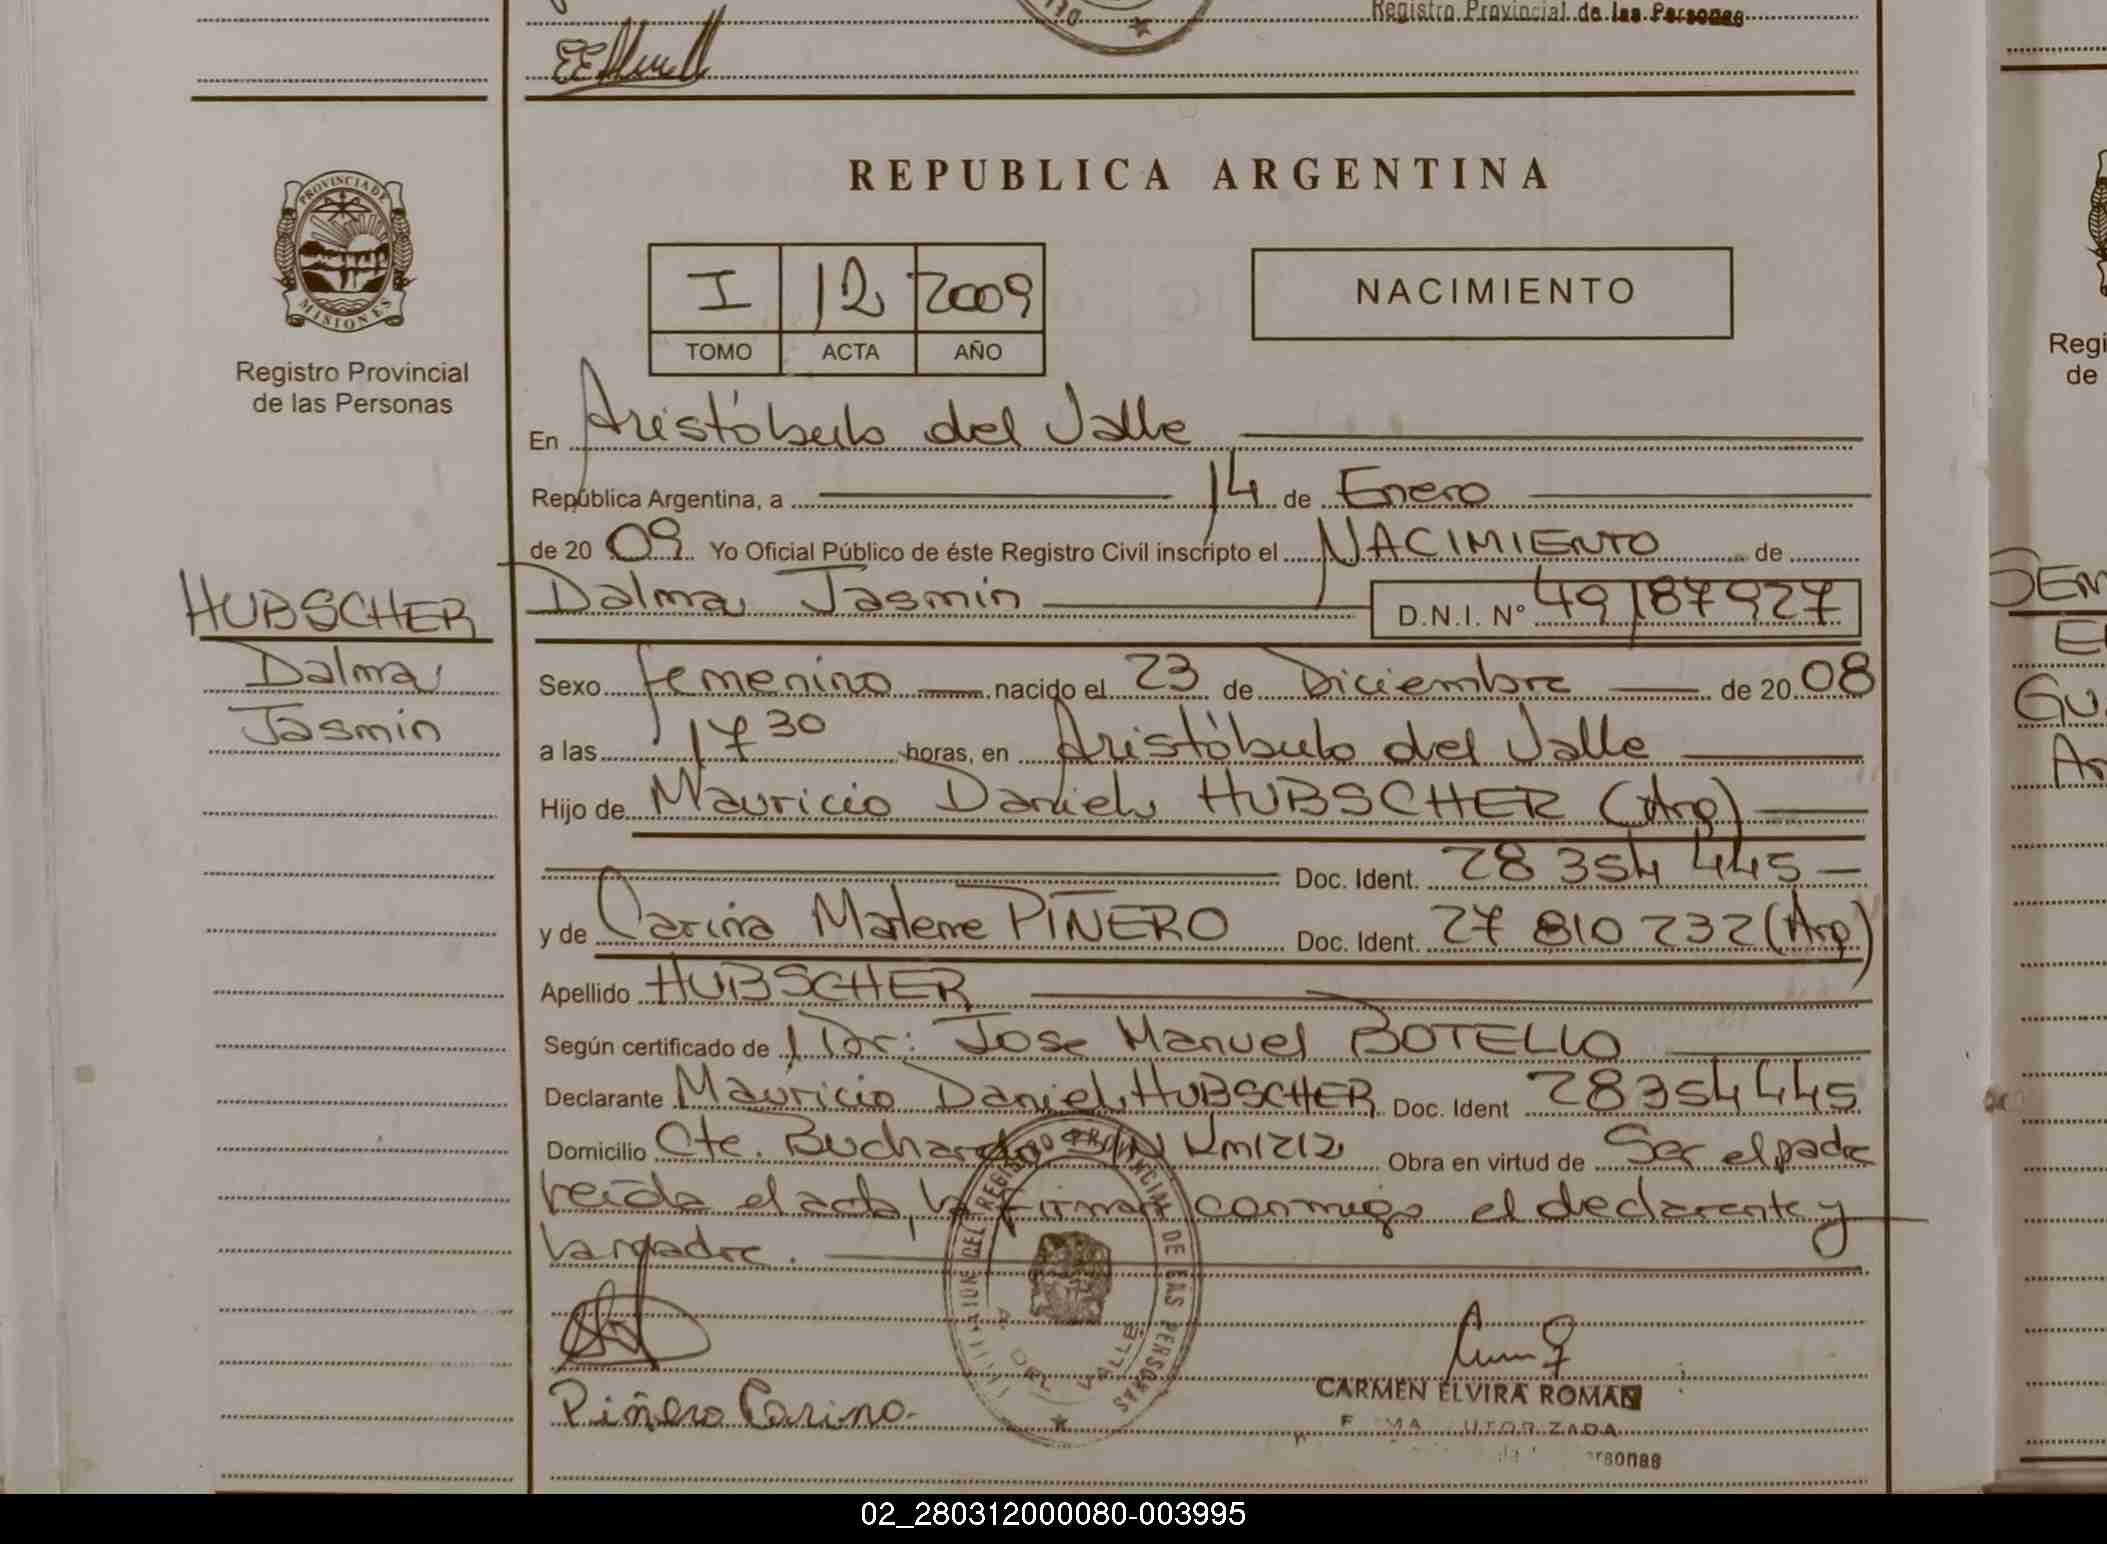 Registro Provincial de las Personas
REPUBLICA ARGENTINA
PROVINCIA DE
MISIONES
Registro Provincial
de las Personas
I 12 2009
TOMO ACTA AÑO
NACIMIENTO
En Aristóbulo del Valle
República Argentina, a 14 de Enero
de 20 09 Yo Oficial Público de éste Registro Civil inscripto el NACIMIENTO de
HUBSCHER
Dalma
Jasmin
Dalma Jasmin D.N.I. Nº 49187927
Sexo femenino nacido el 23 de Diciembre de 20 08
a las 17 30 horas, en Aristóbulo del Valle
Hijo de Mauricio Daniel HUBSCHER (Arg)
Doc. Ident. 28 354 445
y de Carina Marlene PIÑERO Doc. Ident. 27 810 232 (Arg)
Apellido HUBSCHER
Según certificado de Dr: Jose Manuel BOTELLO
Declarante Mauricio Daniel HUBSCHER Doc. Ident 28354445
Domicilio Cte. Buchardo S/N Km1212 Obra en virtud de Ser el padre
leída el acta, la firman conmigo el declarante y
la madre.
REGISTRO PROVINCIAL DE LAS PERSONAS
A. DEL VALLE
Piñero Carina
CARMEN ELVIRA ROMAN
Regi
de
GU
02_280312000080-003995